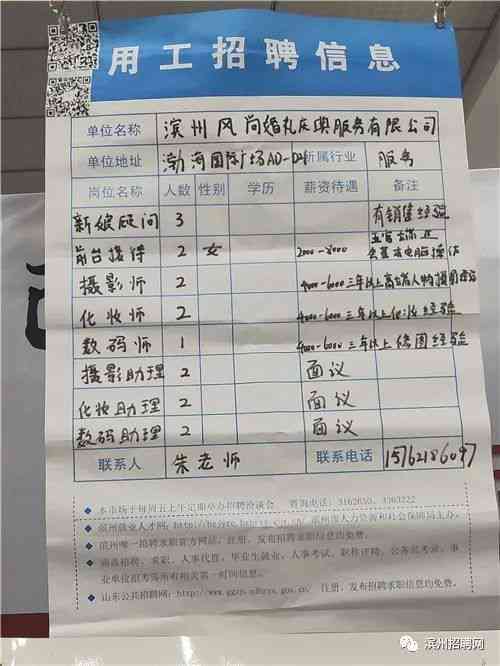 用工招聘信息
单位名称 滨州风尚婚礼庆典服务有限公司
单位地址 渤海国际广场 所属行业 服务
岗位名称 人数 性别 学历 薪资待遇 备注
新娘顾问 3 有销售经验
前台接待 2 女 五官端正
摄影师 2 4000-6000 三年以上高端人物摄影
化妆师 2 4000-6000 三年以上化妆经验
数码师 1 4000-6000 三年以上修图经验
摄影助理 2 面议
化妆助理 2 面议
数码助理 2 面议
联系人 朱老师 联系电话
本市场于每周五上午定期举办招聘洽谈会 咨询电话：3162650、3363222
滨州就业人才网：
滨州唯一招聘求职官方网站，注册、发布招聘求职信息均免费。
涵盖招聘、求职、人事代管、毕业生就业、人事考试、职称评聘、公务员考录、事
业单位招考等所有相关第一时间信息。
山东公共招聘网： 注册、发布招聘求职信息均免费。
滨州招聘网